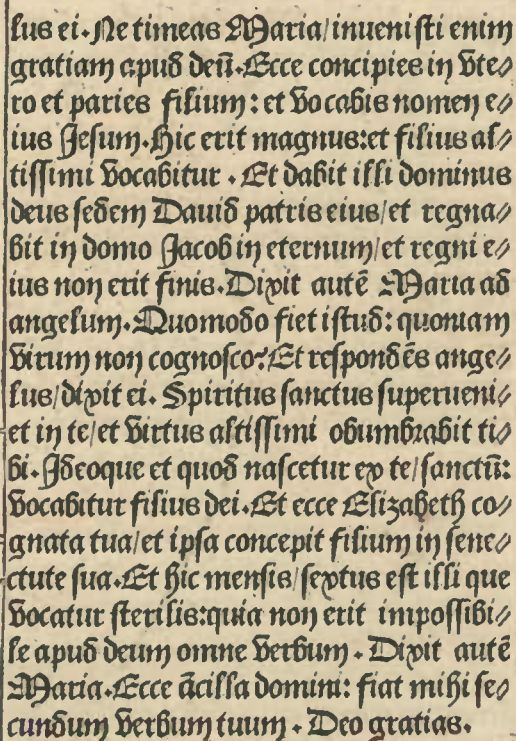 lus ei. Ne timeas Maria/inuenisti enim
gratiam apud deū. Ecce concipies in vte⸗
ro et paries filium: et vocabis nomen e⸗
ius Jesum. Hic erit magnus: et filius al⸗
tissimi vocabitur. Et dabit illi dominus
deus sedem Dauid patris eius/et regna⸗
bit in domo Jacob in eternum/et regni e⸗
ius non erit finis. Dixit autē Maria ad
angelum. Quomodo fiet istud: quoniam
virum non cognosco? Et respondēs ange⸗
lus/dixit ei. Spiritus sanctus superueni⸗
et in te/et virtus altissimi obumbrabit ti⸗
bi. Ideoque et quod nascetur ex te/sanctū:
vocabitur filius dei. Et ecce Elizabeth co⸗
gnata tua/et ipsa concepit filium in sene⸗
ctute sua. Et hic mensis/sextus est illi que
vocatur sterilis: quia non erit impossibi⸗
le apud deum omne verbum. Dixit autē
Maria. Ecce ācilla domini: fiat mihi se⸗
cundum verbum tuum. Deo gratias.